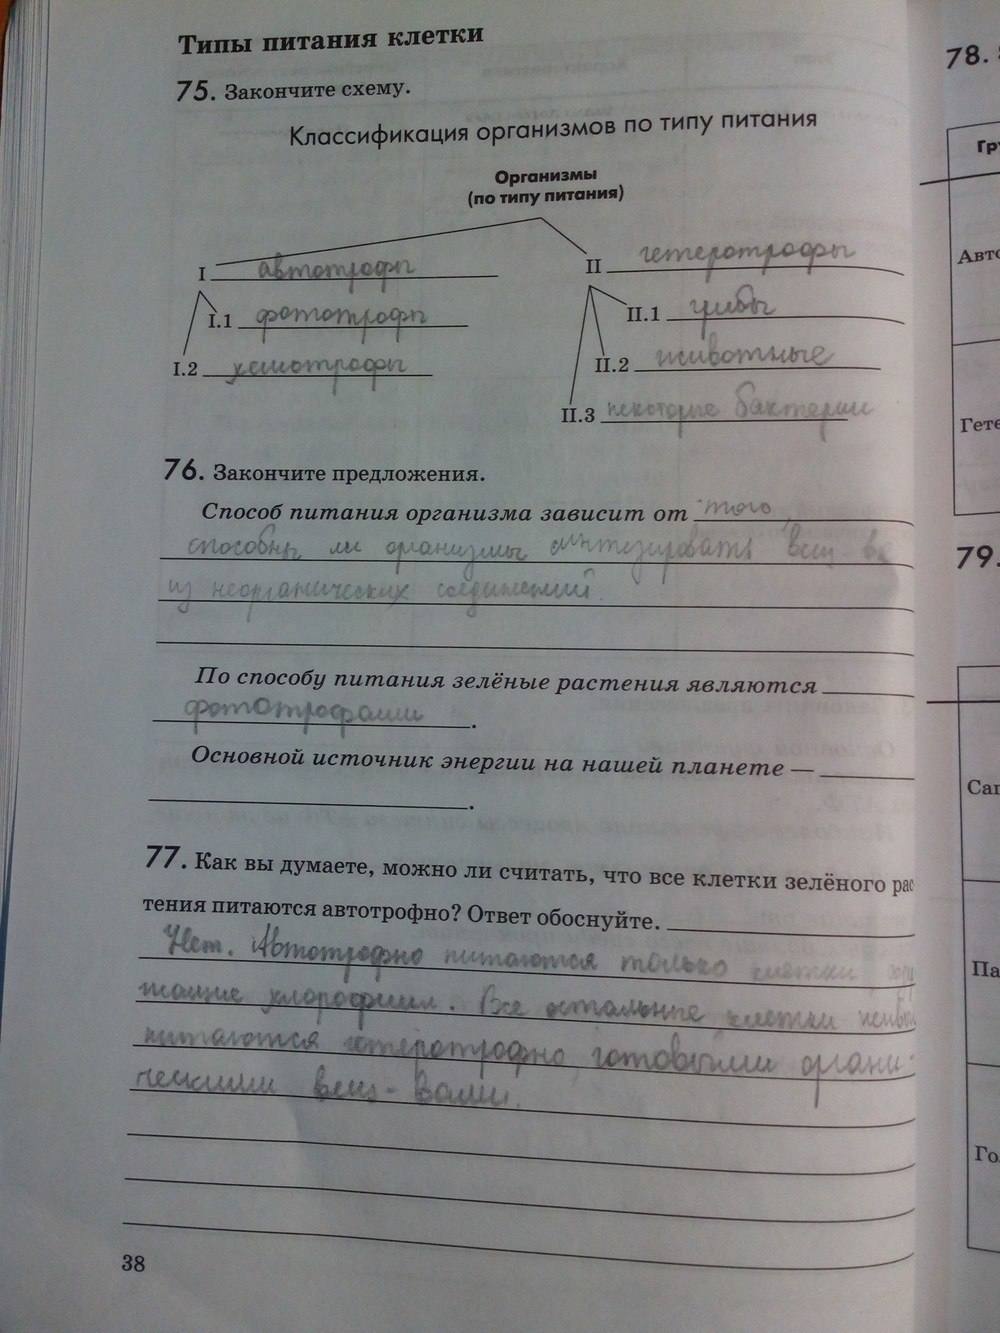 Типы питания клетки
75. Закончите схему.
Классификация организмов по типу питания
Организмы
(по типу питания)
I автотрофы
II гетеротрофы
I.1 фототрофы
II.1 грибы
I.2 хемотрофы
II.2 животные
II.3 некоторые бактерии
76. Закончите предложения.
Способ питания организма зависит от того,
способны ли организмы синтезировать вещ-ва
из неорганических соединений.
По способу питания зелёные растения являются
фототрофами.
Основной источник энергии на нашей планете —
77. Как вы думаете, можно ли считать, что все клетки зелёного рас
тения питаются автотрофно? Ответ обоснуйте.
Нет. Автотрофно питаются только клетки
жащие хлорофилл. Все остальные клетки
питаются гетеротрофно, готовыми органи-
ческими вещ-вами.
38
78.
Гр
Авто
Гете
79.
Сап
Па
Го